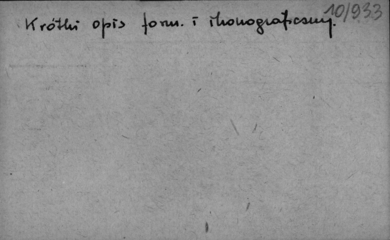 10/933
Krótki opis form. i ikonograficzny.